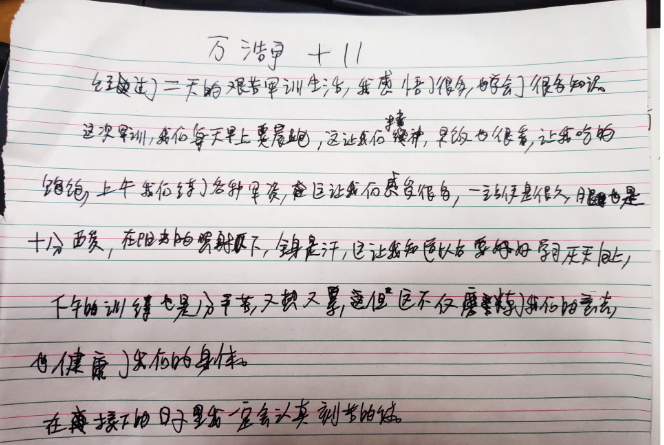 万浩甲 十11
经过了二天的艰苦军训生活,我感悟了很多,也学会了很多知识。
这次军训,我们每天早上要晨跑,这让我们很精神,早饭也很香,让我吃的
饱饱,上午我们练了各种军姿,这让我们感受很多,一站便是很久,腿也是
十分酸,在阳光的照射下,全身是汗,这让我知道以后要好好学习,天天向上,
下午的训练也是十分辛苦,又热又累,但这不仅磨练了我们的意志,
也健康了我们的身体。
在接下的日子里我一定会认真刻苦的练。